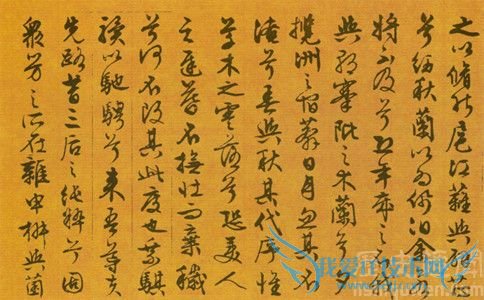 之以脩能扈江蘺與辟
兮紉秋蘭以為佩汩余若
將不及兮恐年歲之不
與朝搴阰之木蘭兮夕
攬洲之宿莽日月忽其不
淹兮春與秋其代序惟
草木之零落兮恐美人
之遲暮不撫壯而棄穢
兮何不改其此度也乘騏
驥以馳騁兮来吾導夫
先路昔三后之純粹兮固
衆芳之所在雜申椒與菌